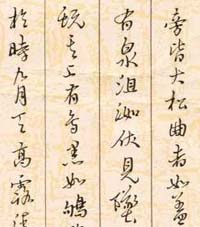 旁皆大松曲者如蓋
有泉沮洳伏見墮
蚖其上有鳥黑如鴝
於時九月天高露清